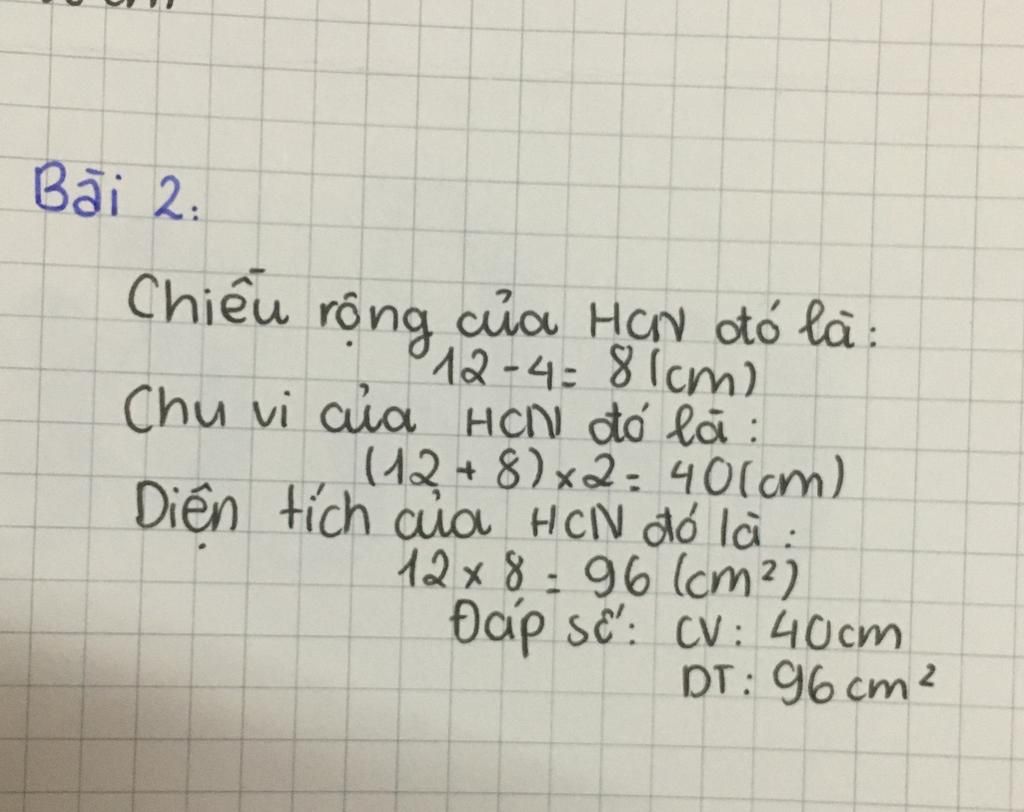 Bài 2:
Chiều rộng của HCN đó là:
12 - 4 = 8 (cm)
Chu vi của HCN đó là:
(12 + 8) × 2 = 40 (cm)
Diện tích của HCN đó là:
12 × 8 = 96 (cm²)
Đáp số: CV: 40cm
DT: 96 cm²